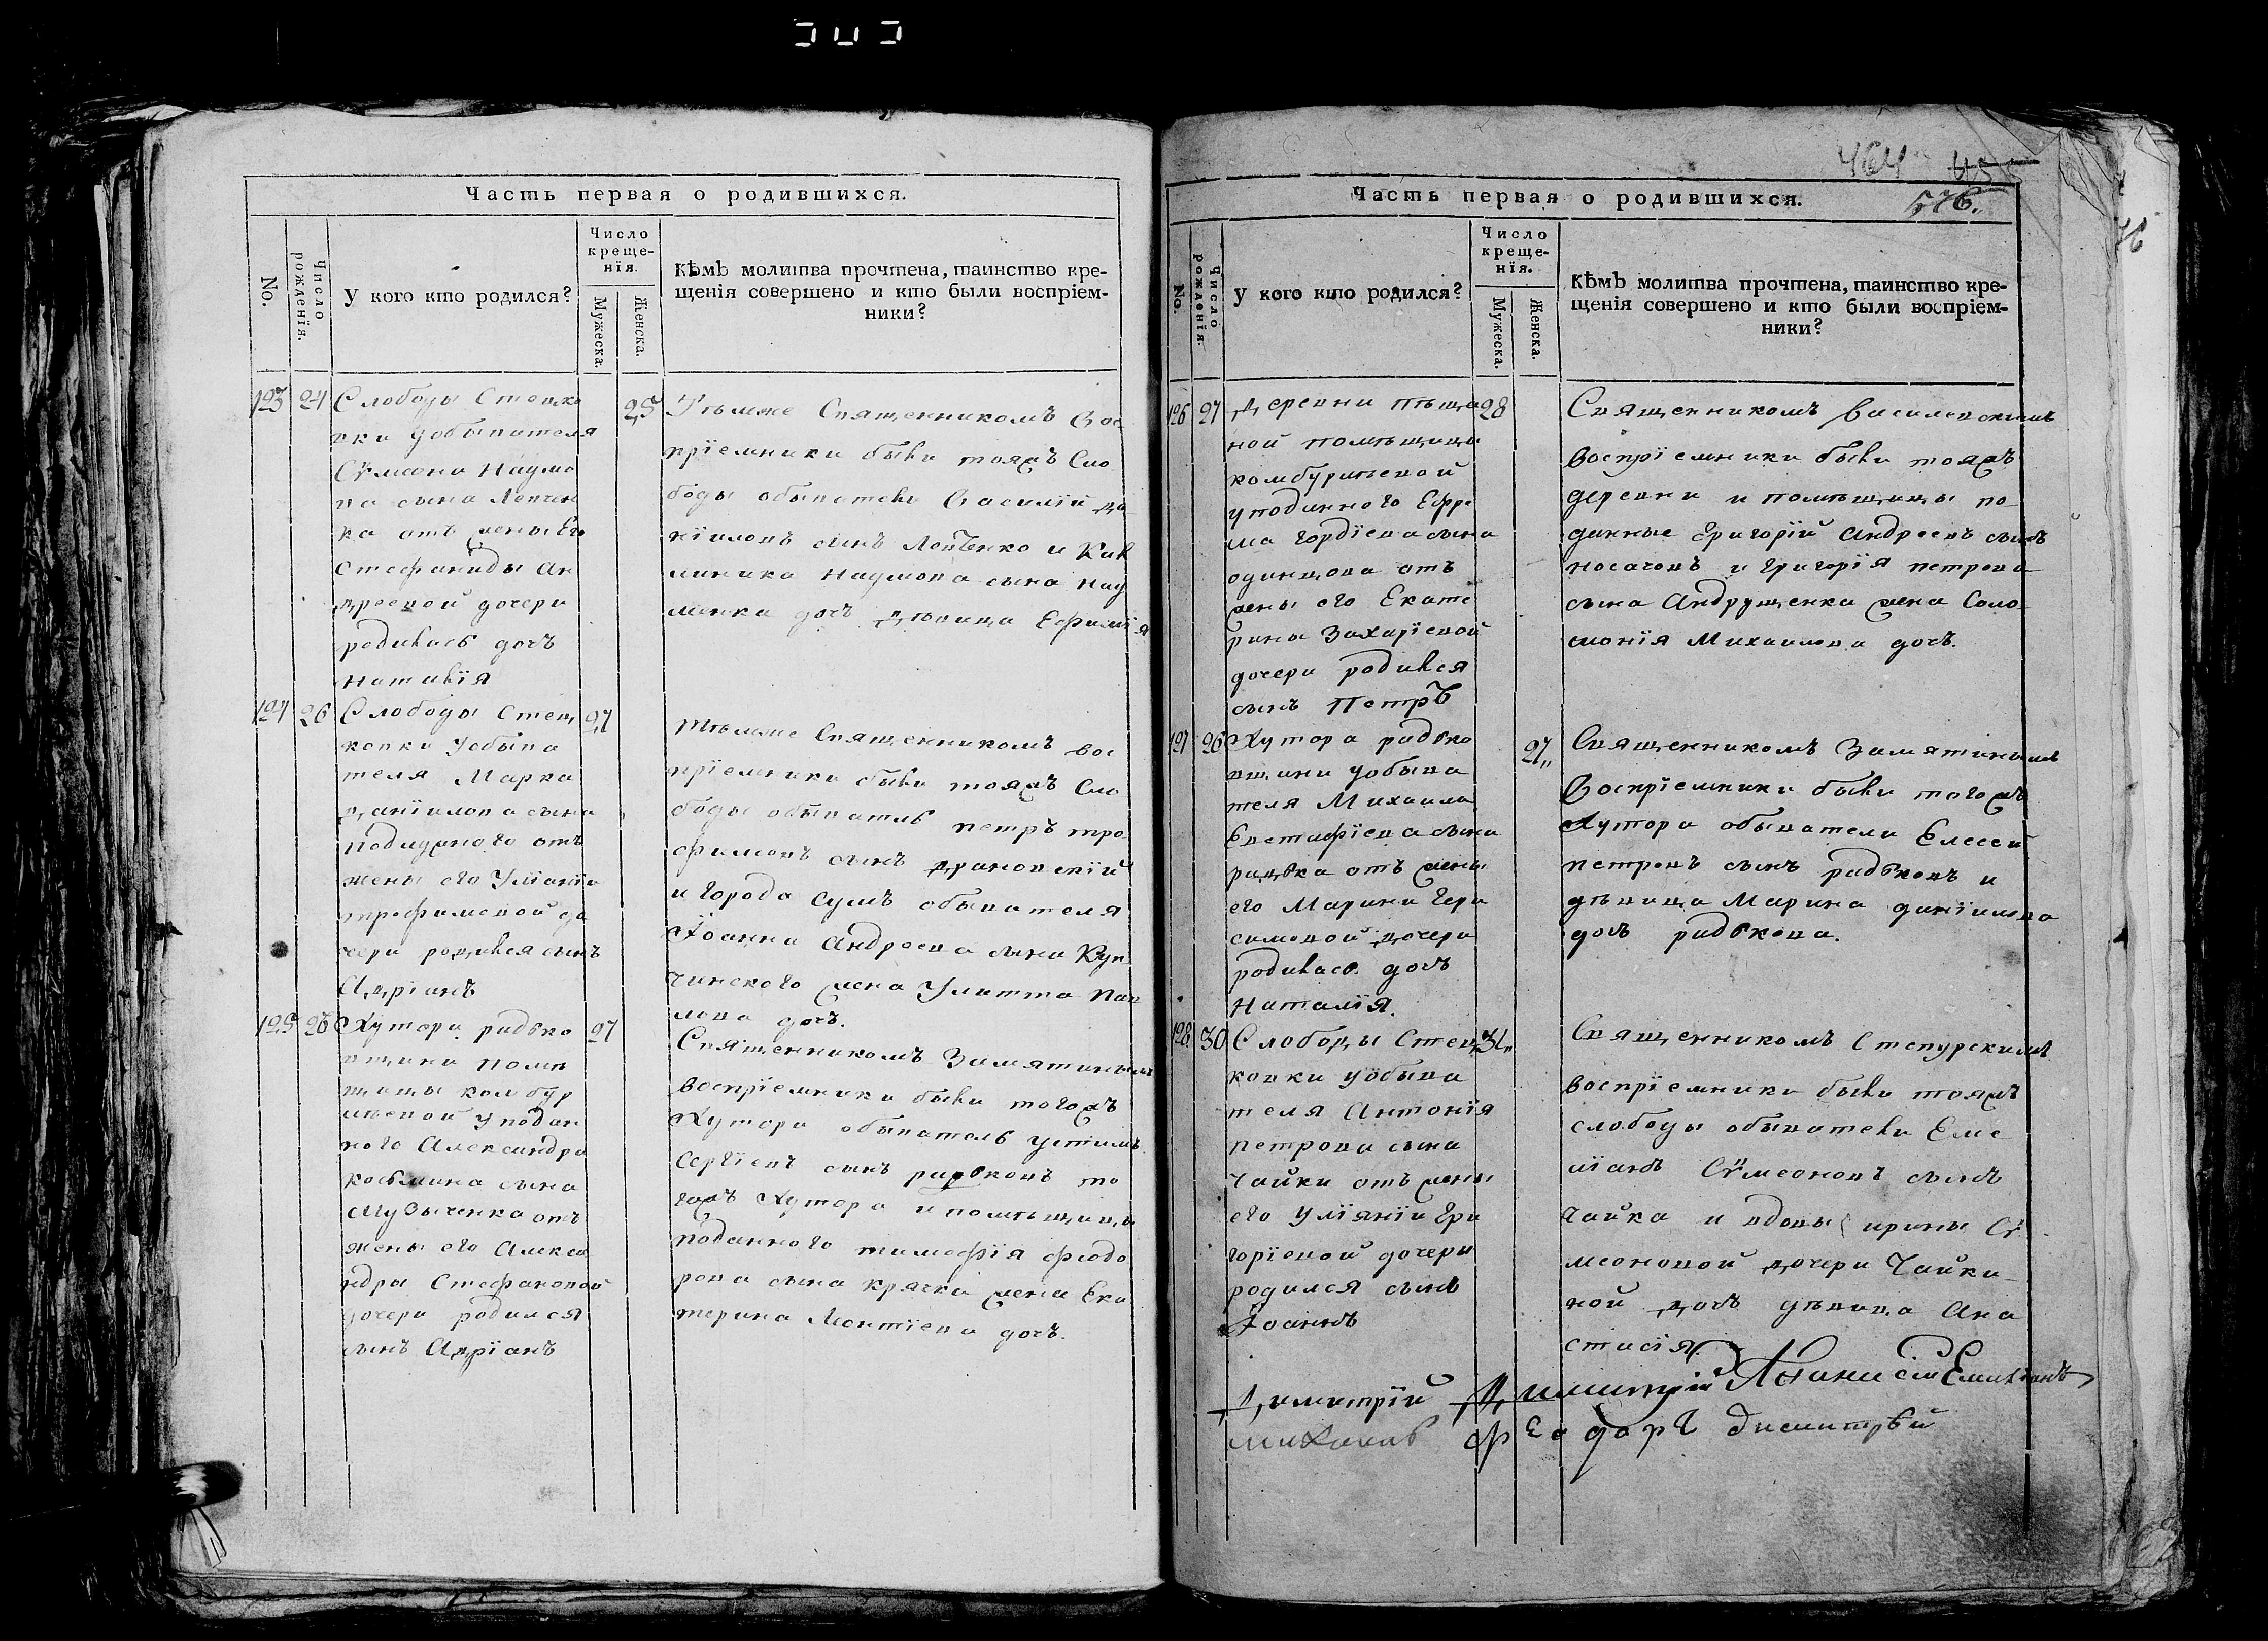 Часть первая о родившихся.
No.
Число рожденїя.
У кого кто родился?
Число креще-
нїя.
Мужеска.
Женска.
Кѣмъ молитва прочтена, таинство кре-
щенія совершено и кто были воспріем-
ники?
123 24 Слободы Степко
вки уобывателя
Сѵмеона Наумо
ва сына Левчен
ка отъ жены Его
Стефаниды Ан
дреевой дочери
родилась дочь
Наталїя
25 Тѣмже Священникомъ Вос
прїемники были тояжъ Сло
боды обыватели Василїй Да
нїиловъ сынъ Левченко и Кал
линика Наумова сына Нау
менка дочь дѣвица Ефимїя
124 26 Слободы Степ
ковки Уобыва
теля Марка
Данїилова сына
отъ
жены его Улїанїи
трофимовой до
чери родился сынъ
Адрїанъ
27 Тѣмже Священникомъ вос
прїемники были тояжъ Сло
боды обыватель петръ тро
фимовъ сынъ
и города Сумъ обывателя
Іоанна Андреева сына Куп
чинского жена Улитта Пав
лова дочь.
125 26 Хутора рядько
вщини помѣ
щицы Комбур
лѣевой уподан
ного Александра
косьмина сына
Музыченка отъ
жены его Алекса
ндры Стефановой
дочери родился
сынъ Адрїанъ
27 Священникомъ Замятинымъ
воспрїемники были тогожъ
Хутора обыватель устимъ
Сергїевъ сынъ рядьковъ то
гожъ Хутора и помѣщицы
поданного тимофїя федо
рова сына крячка жена Ека
терина Леонтїева дочь.
Часть первая о родившихся.
576.
No.
Число рожденїя.
У кого кто родился?
Число креще-
нїя.
Мужеска.
Женска.
Кѣмъ молитва прочтена, таинство кре-
щенія совершено и кто были воспріем-
ники?
126 27 Деревни пѣща
ной помѣщицы
комбурлѣевой
уподанного Ефре
ма Гордїева сына
одинцова отъ
жены его Екате
рины Захарїевой
дочери родился
сынъ Петръ
28 Священникомъ Василевскимъ
Воспрїемники были тояжъ
деревни и помѣщицы по
данные Григорїй Андреевъ сынъ
носачовъ и григорїя петрова
сына Андрущенка жена Соло
монїя Михаилова дочь.
127 26 Хутора рядько
вщини уобыва
теля Михаила
Евстафїева сына
рядька отъ жены
его Марини Гера
симовой дочери
родилась дочь
Наталїя.
27 Священникомъ Замятинымъ
Воспрїемники были тогожъ
Хутора обыватели Елесей
петровъ сынъ рядьковъ и
дѣвица Марина данїилова
дочь рядькова.
128 30 Слободы Степ
ковки уобыва
теля Антонїя
петрова сына
Чайки отъ жены
его Улїянїи Гри
горїевой дочери
родился сынъ
Іоаннъ
31 Священникомъ Степурскимъ
воспрїемники были тояжъ
слободы обыватели Еме
лїанъ Сѵмеоновъ сынъ
Чайка и вдовы ирины Сѵ
меоновой дочери Чайки
ной дочь дѣвица Ана
стасїя.
Димитрїй Димитрїй Емилїанъ
михаилъ Феодоръ димитрѣй